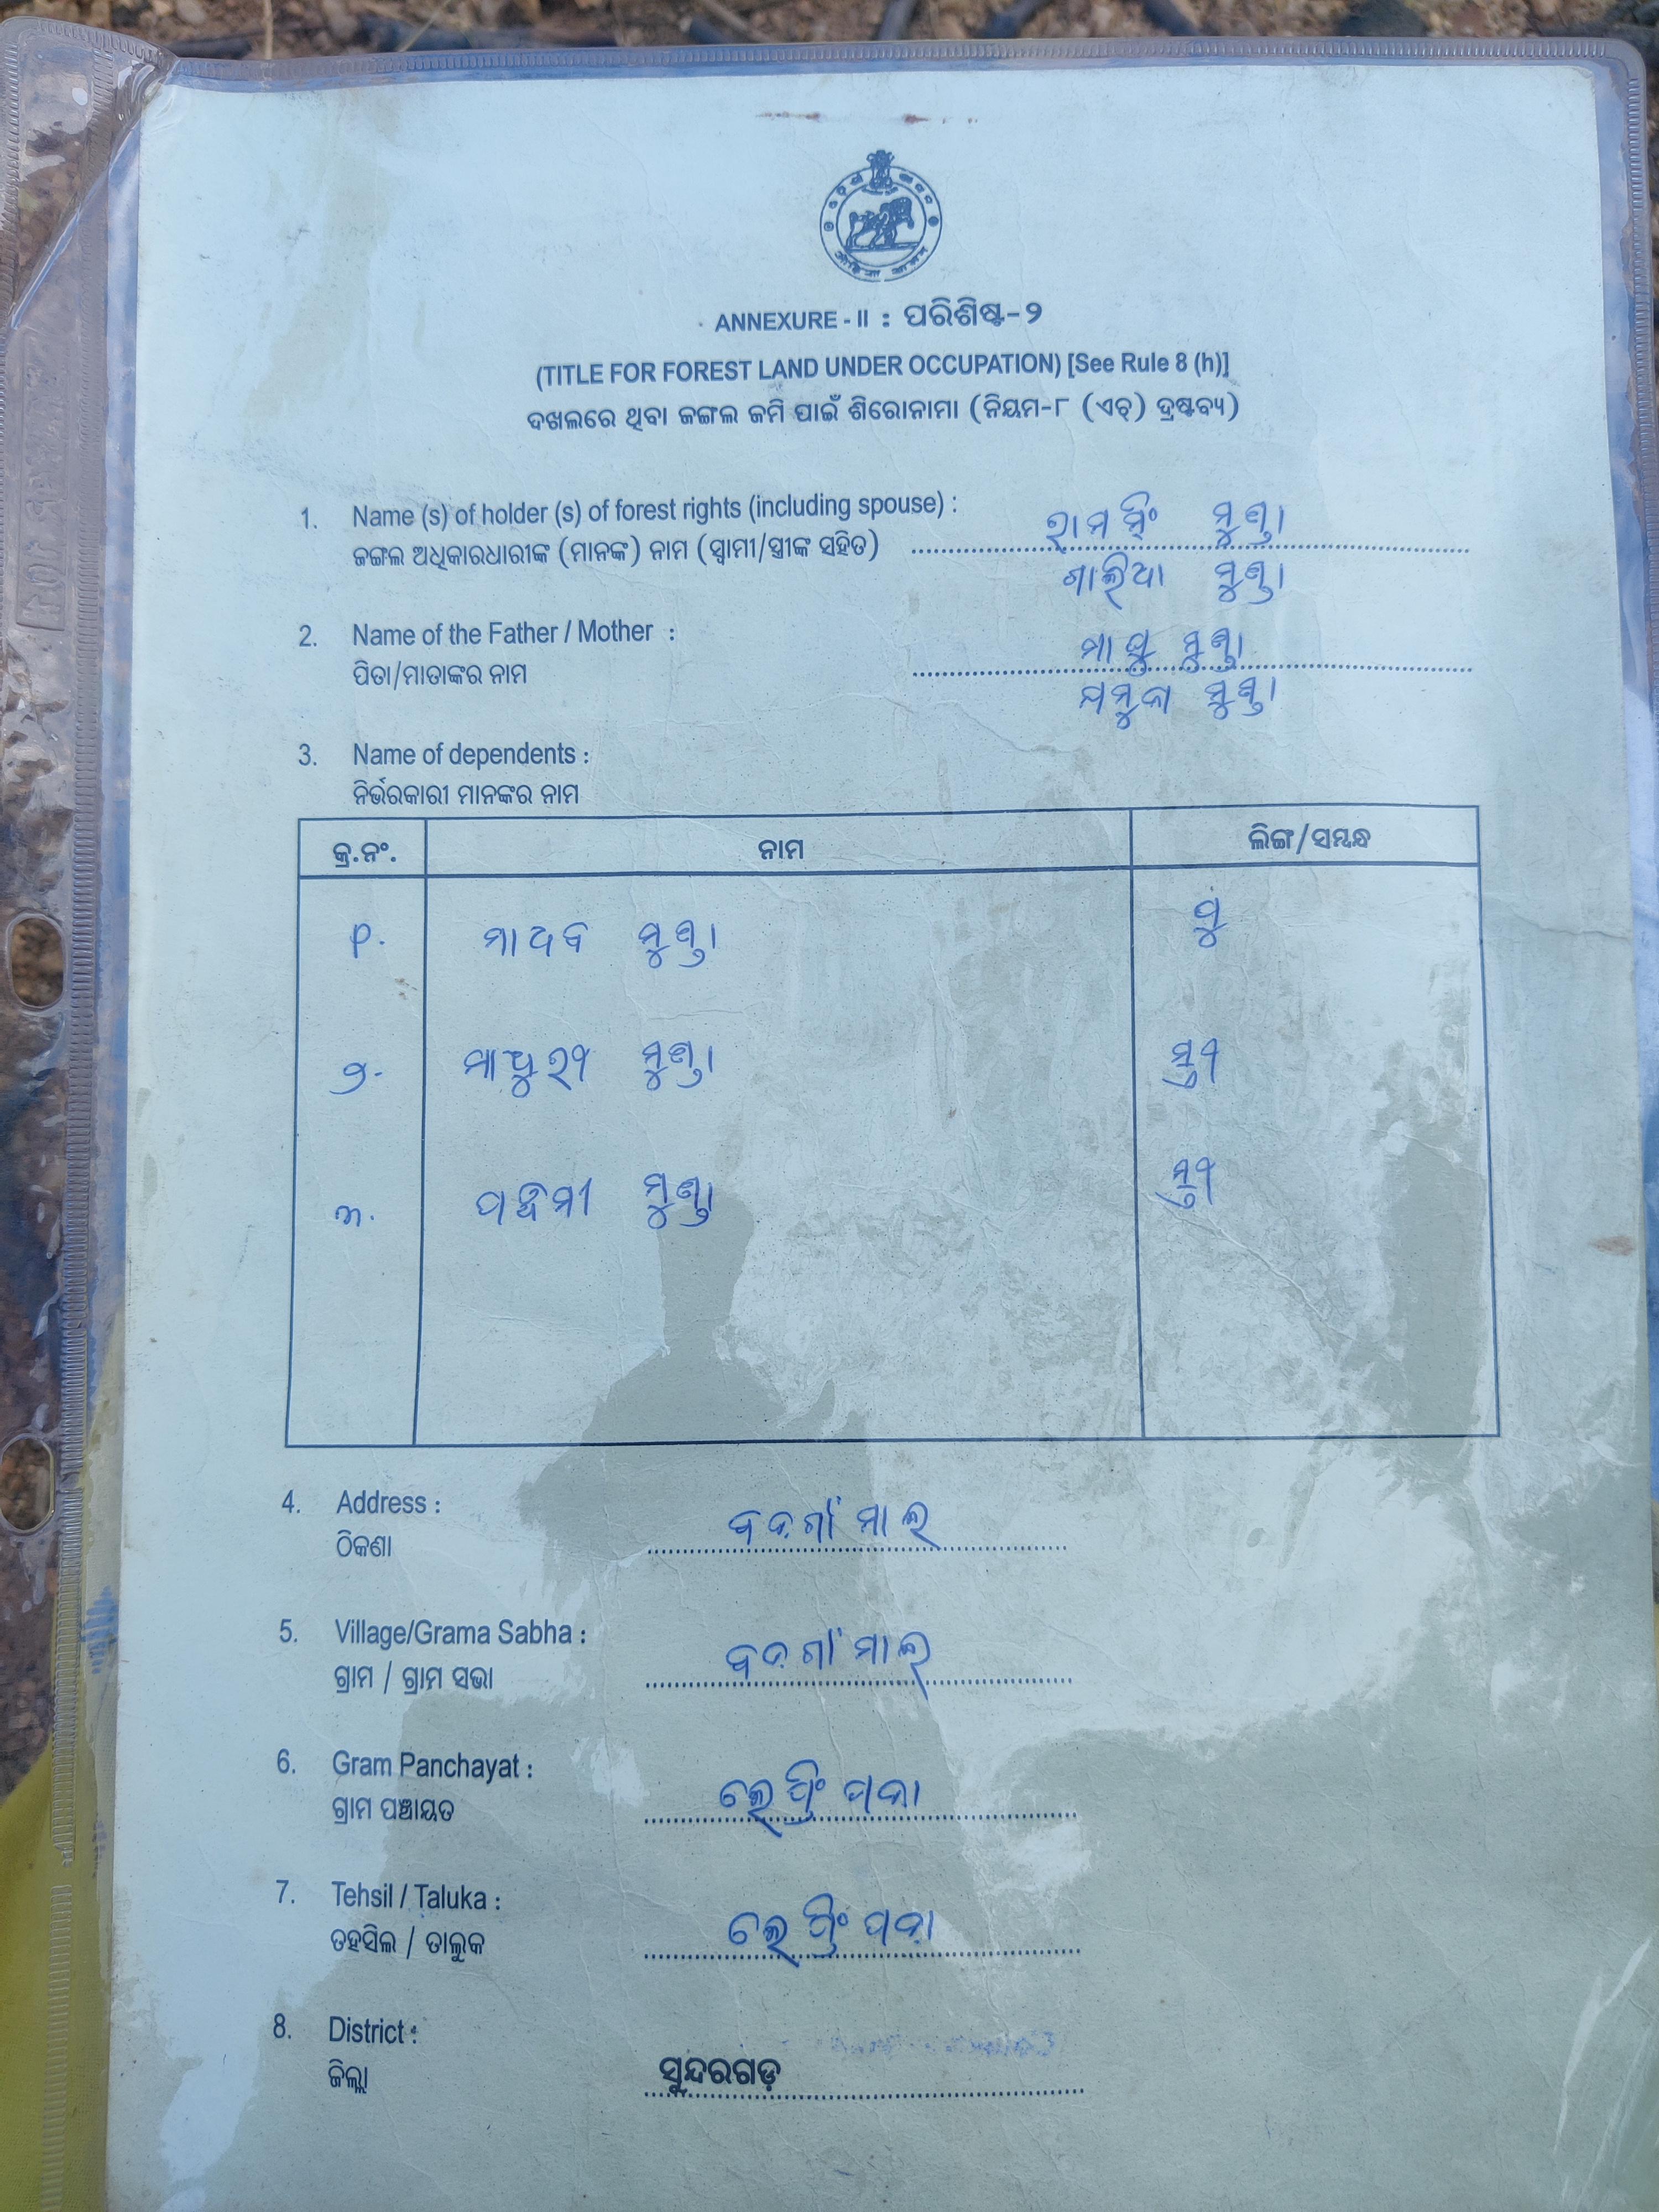 ANNEXURE - II : ପରିଶିଷ୍ଟ-୨
(TITLE FOR FOREST LAND UNDER OCCUPATION) [See Rule 8 (h)]
ଦଖଲରେ ଥିବା ଜଙ୍ଗଲ ଜମି ପାଇଁ ଶିରୋନାମା (ନିୟମ-୮ (ଏଚ୍) ଦ୍ରଷ୍ଟବ୍ୟ)
1. Name (s) of holder (s) of forest rights (including spouse) : ରାମସିଂ ମୁଣ୍ଡା
ଜଙ୍ଗଲ ଅଧିକାରଧାରୀଙ୍କ (ମାନଙ୍କ) ନାମ (ସ୍ୱାମୀ/ସ୍ତ୍ରୀଙ୍କ ସହିତ)
ମୁଣ୍ଡା
2. Name of the Father / Mother : ମୁଣ୍ଡା
ପିତା/ମାତାଙ୍କର ନାମ
ଯମୁନା ମୁଣ୍ଡା
3. Name of dependents :
ନିର୍ଭରକାରୀ ମାନଙ୍କର ନାମ
କ୍ର.ନଂ. ନାମ ଲିଙ୍ଗ/ସମ୍ବନ୍ଧ
୧. ମାଧବ ମୁଣ୍ଡା ପୁ
୨. ମାଧୁରୀ ମୁଣ୍ଡା ସ୍ତ୍ରୀ
୩. ମୁଣ୍ଡା ସ୍ତ୍ରୀ
4. Address : ବଡ଼ଗାଁମାଲ
ଠିକଣା
5. Village/Grama Sabha : ବଡ଼ଗାଁମାଲ
ଗ୍ରାମ / ଗ୍ରାମ ସଭା
6. Gram Panchayat : ଲେପ୍ରିଂପଡା
ଗ୍ରାମ ପଞ୍ଚାୟତ
7. Tehsil / Taluka : ଲେପ୍ରିଂପଡ଼ା
ତହସିଲ / ତାଲୁକ
8. District : ସୁନ୍ଦରଗଡ଼
ଜିଲ୍ଲା